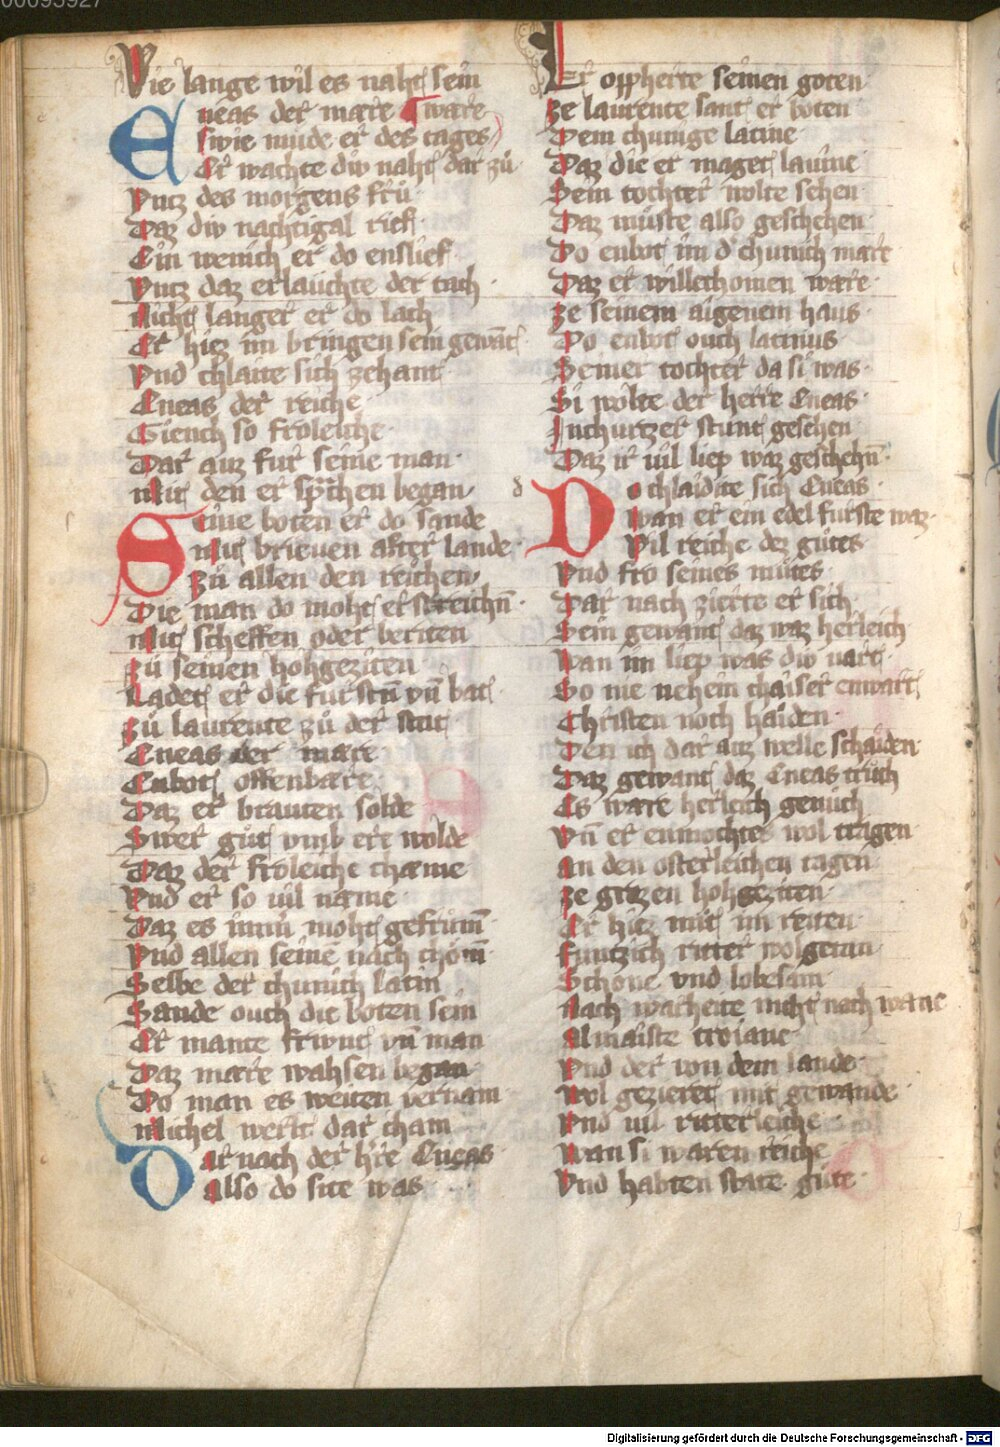 00095927
Wie lange wil es naht sein
Eneas der mare ¶ ware
swie mude er des tages
Er wachte div naht dar zů
Vntz des morgens frů
Daz div nachtigal rief
Ein wenich er do enslief
Vntz daz erlauchte der tach
nicht langer er do lach
Er hiez im bringen sein gewāt
Vnd chlaite sich zehant
Eneas der reiche
Giench so froleiche
Dar auz fur seine man
Mit den er sprechen began
Seine boten er do sande
mit brieuen after lande
zů allen den reichen
Die man do moht erstreichn̄
Mit scheffen oder beriten
zů seinen hohgeziten
Ladet er die furstn̄ vn̄ bat
zů laurente zů der stat
Eneas der mare
Enbot offenbare
Daz er brauten solde
Swer gůt vmb ere wolde
Daz der froleiche chæme
Vnd er so uil næme
Daz es immer moht gefrumn̄
Vnd allen seinē nach chomn̄
Selbe der chunich latin
Sande ouch die boten sein
Er mante friwnt vn̄ man
Daz mære wahsen began
Do man es weiten vernam
Michel werlt dar cham
Dar nach der hr̄e Eneas
also do site was
Er oppherte seinen goten
ze laurente sant er boten
Dem chunige latine
Daz die er maget lauine
Sein tochter wolte sehen
Daz muste also geschehen
Do enbot im d' chunich mære
Daz er willechomen wære
ze seinem aigenem haus
Do enbot ouch latinus
Seiner tochter da si was
Si wolte der herre Eneas
Inchurtzer stunt gesehen
Daz ir uil liep waz geschehn̄
d Do chlaidite sich Eneas
wan er ein edel furste waz
Vil reiche dez gutes
Vnd fro seines mutes
Dar nach zierte er sich
Sein gewant daz waz herleich
wan im liep was div uart
So nie nehein chaiser enwart
Christen noch haiden
Den ich dar auz welle schaiden
Daz gewant daz Eneas trůch
Es ware herleich genůch
Vn̄ er enmochtes wol tragen
an den osterleichen tagen
ze grozen hohgeziten
Er hiez mit im reiten
Funtzich ritter wolgetan
Schone vnd lobesam
Nach warheite nicht nach wane
almaiste troiane
Vnd der von dem lande
wol gezieret mit gewande
Vnd uil ritterleiche
wan si waren reiche
Vnd habten state gůte
Digitalisierung gefördert durch die Deutsche Forschungsgemeinschaft - DFG